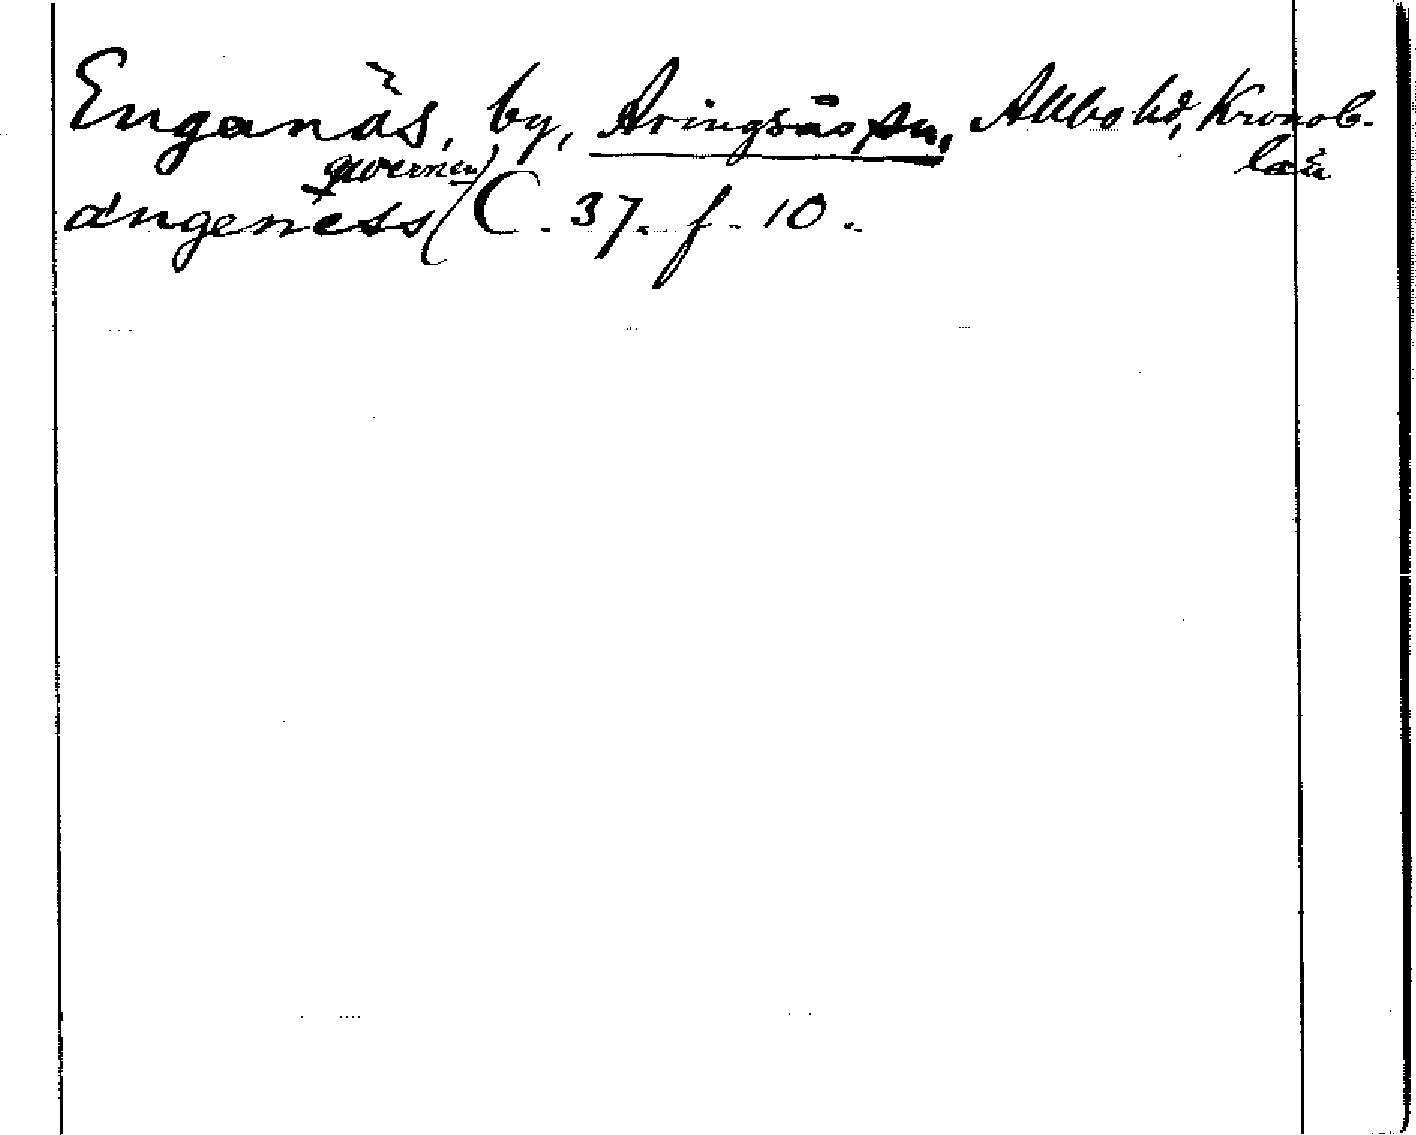 Enganäs, by, Aringsås sn, Allbo hd, Kronob.
län
qwernen)
ångeness (C. 37. f. 10.